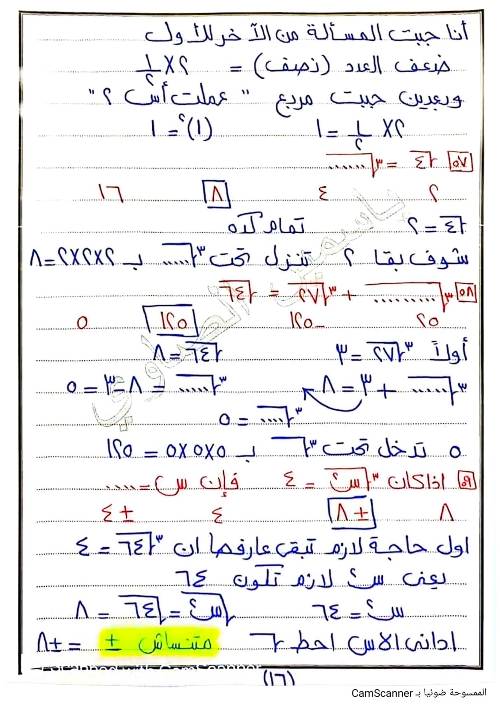 أنا جبت المسألة من الآخر للأول
ضعف العدد (نصف) = ٢ × ١/٢
وبعدين جبت مربع "عملت أس ٢"
٢ × ١/٢ = ١   (١)² = ١
٥٧ √٤ = ³√......
٢   ٤   ٨   ١٦
√٤ = ٢ تمام كده
شوف بقا ٢ تنزل تحت ³√..... ب ٢×٢×٢=٨
٥٨ ³√......... + ³√٢٧ = √٦٤
٢٥   -١٢٥   ١٢٥   ٥
أولاً ³√٢٧ = ٣   √٦٤ = ٨
³√...... + ٣ = ٨   ³√..... = ٨ - ٣ = ٥
³√..... = ٥
٥ تدخل تحت ³√ ب ٥×٥×٥ = ١٢٥
٥٩ اذا كان ³√س² = ٤ فإن س = ....
٨   ± ٨   ٤   ± ٤
اول حاجة لازم تبقى عارفها ان ³√٦٤ = ٤
يعنى س² لازم تكون ٦٤
س² = ٦٤   √س² = √٦٤ = ٨
ادانى الاس احط √ متنساش ± = ±٨
(١٦)
Scanned with CamScanner
الممسوحة ضوئيا بـ CamScanner